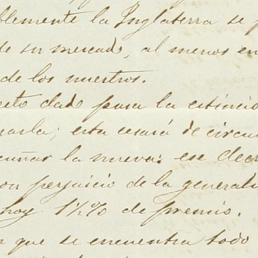 blemente la Inglaterra se
de su mercado, al menos en
de los nuestros.
creto dado para la estinció
marla; esta cesará de circu
cuñar la nueva: ese decre
con perjuicio de la generali
hoy 1½% de premio.
que se encuentra todo